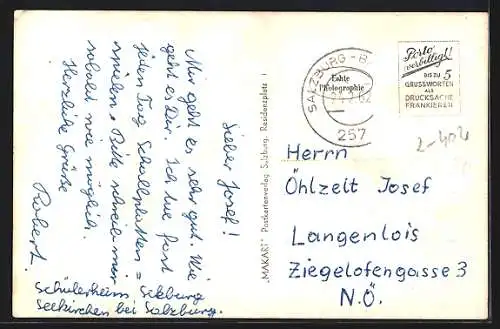 Lieber Josef!
Mir geht es sehr gut. Wie
geht es Dir. Ich tue fast
jeden Tag Schallplatten =
spielen. Bitte schreib mir
sobald wie möglich.
Herzliche Grüße
Robert.
Schülerheim Seeburg
Seekirchen bei Salzburg.
„MAKART" Postkartenverlag Salzburg, Residenzplatz
Echte
Photographie
SALZBURG
257
Porto
verbilligt!
BIS ZU 5
GRUSSWORTEN
ALS
DRUCKSACHE
FRANKIEREN
Herrn
Öhlzelt Josef
Langenlois
Ziegelofengasse 3
N.Ö.